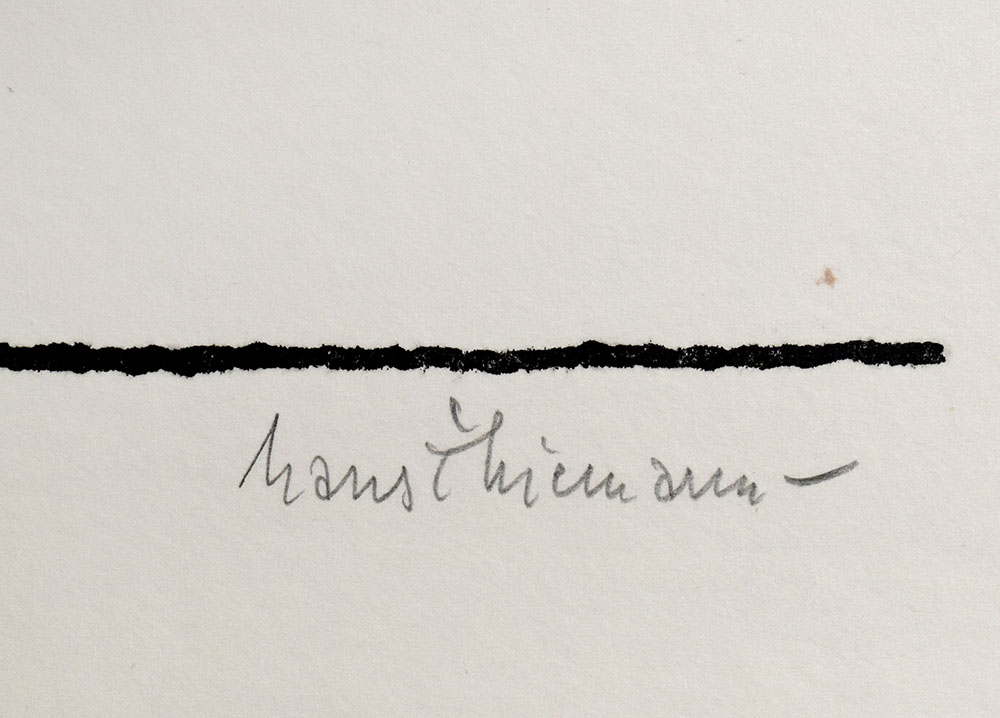 hans Thiemann –